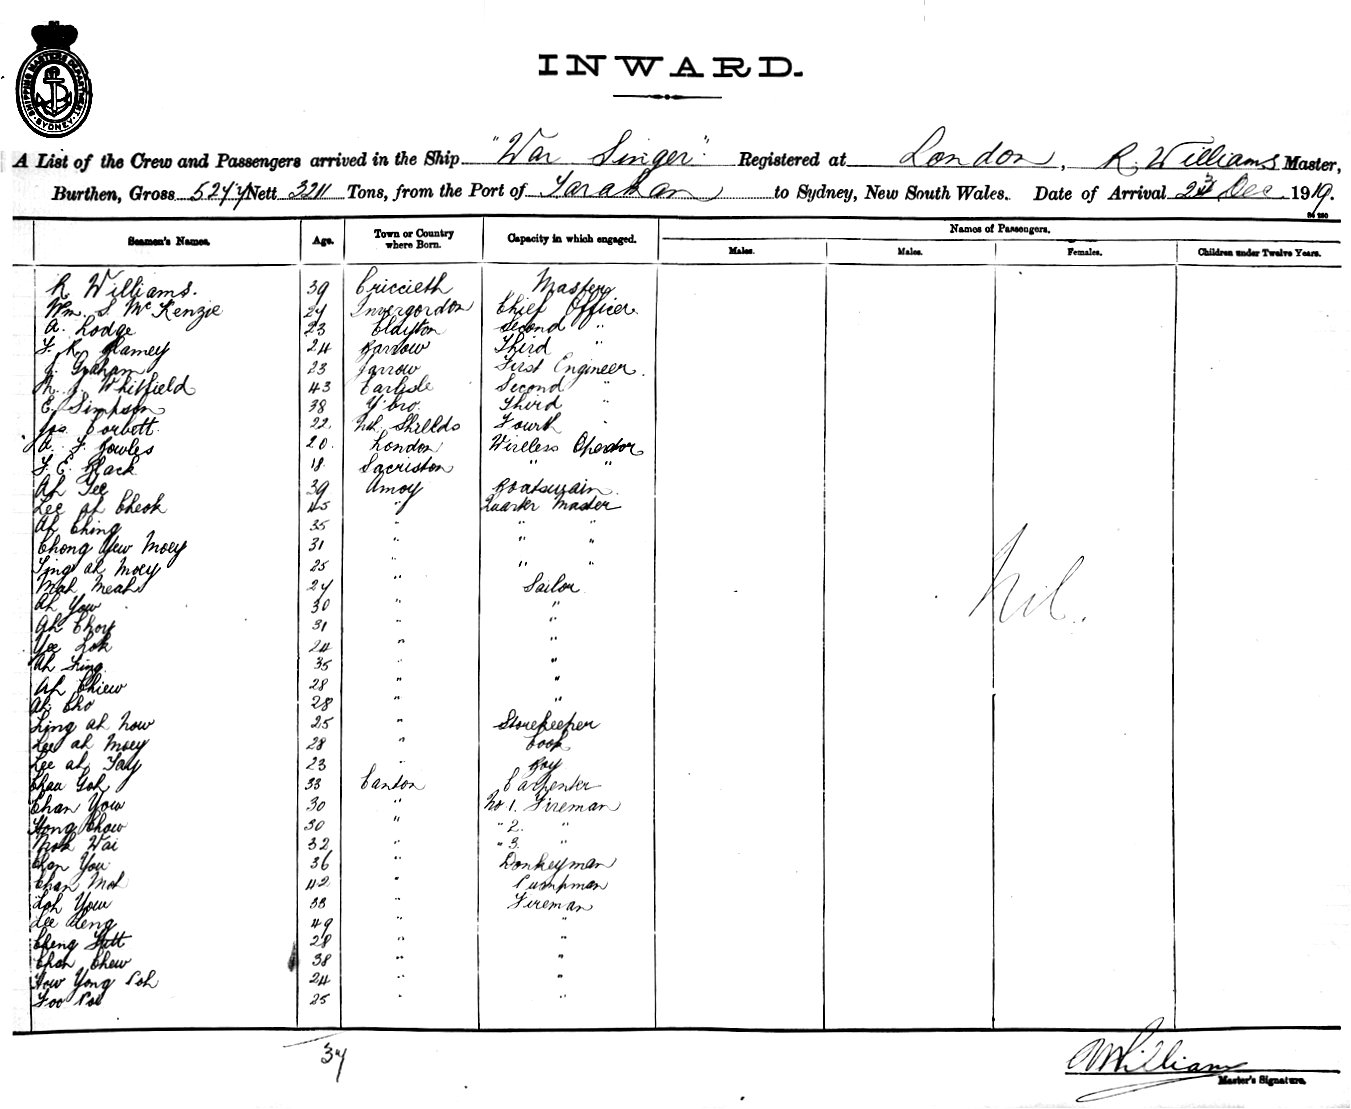 SHIPPING MASTERS DEPARTMENT SYDNEY
INWARD.
A List of the Crew and Passengers arrived in the Ship "War Singer" Registered at London, R. Williams Master,
Burthen, Gross 5247 Nett 3211 Tons, from the Port of Tarakan to Sydney, New South Wales. Date of Arrival 23 Dec 1919.
Seamen's Names. Age. Town or Country where Born. Capacity in which engaged. Names of Passengers.
Males. Males. Females. Children under Twelve Years.
R. Williams. 39 Criccieth Master
Wm. S. McKenzie 27 Invergordon Chief Officer
A. Lodge 23 Clayton Second "
F. R. Blamey 24 Barrow Third "
J. Graham 23 Jarrow First Engineer.
M. J. Whitfield 43 Carlisle Second "
E. Simpson 38 M'bro. Third "
Jos. Corbett 22 Nth Shields Fourth "
A. F. Bowles 20 London Wireless Operator
F. E. Black 18 Sacriston " "
Ah Tee 39 Amoy Boatswain
Lee ah Cheok 45 " Quarter Master
Ah Ching 35 " " "
Chong Yew Moey 31 " " "
Ting ah Moey 25 " " "
Mah Meah 27 " Sailor
Ah Yow 30 " "
Ah Choy 31 " "
Yee Loh 24 " "
Ah Ling 35 " "
Ah Chiew 28 " "
Ah Cho 28 " "
Ling ah how 25 " Storekeeper
Lee ah Moey 28 " Cook
Lee ah Tay 23 " Boy
Chau Goh 33 Canton Carpenter
Chan Yow 30 " No 1. Fireman
Hong Chow 30 " " 2. "
Moh Wai 32 " " 3. "
Chan You 36 " Donkeyman
Chan Moh 42 " Pumpman
Loh Yow 33 " Fireman
Lee Teng 49 " "
Cheng Fatt 28 " "
Chan Chew 38 " "
How Yong Poh 24 " "
Foo Poi 25 " "
Nil.
37
R Williams
Master's Signature.